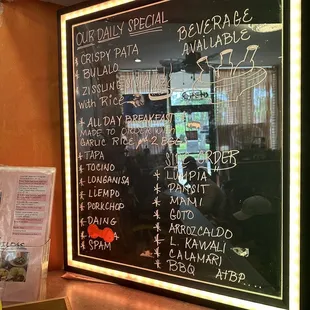 OUR DAILY SPECIAL
* CRISPY PATA
* BULALO
* ZISSLING
with Rice
* ALL DAY BREAKFAST
MADE TO ORDER
GARLIC RICE & 2 EGG
* TAPA
* TOCINO
* LONGANISA
* LIEMPO
* PORKCHOP
* DAING
* SPAM
BEVERAGE
AVAILABLE
SIDE ORDER
* LUMPIA
* PANSIT
* MAMI
* GOTO
* ARROZCALDO
* L. KAWALI
* CALAMARI
* BBQ